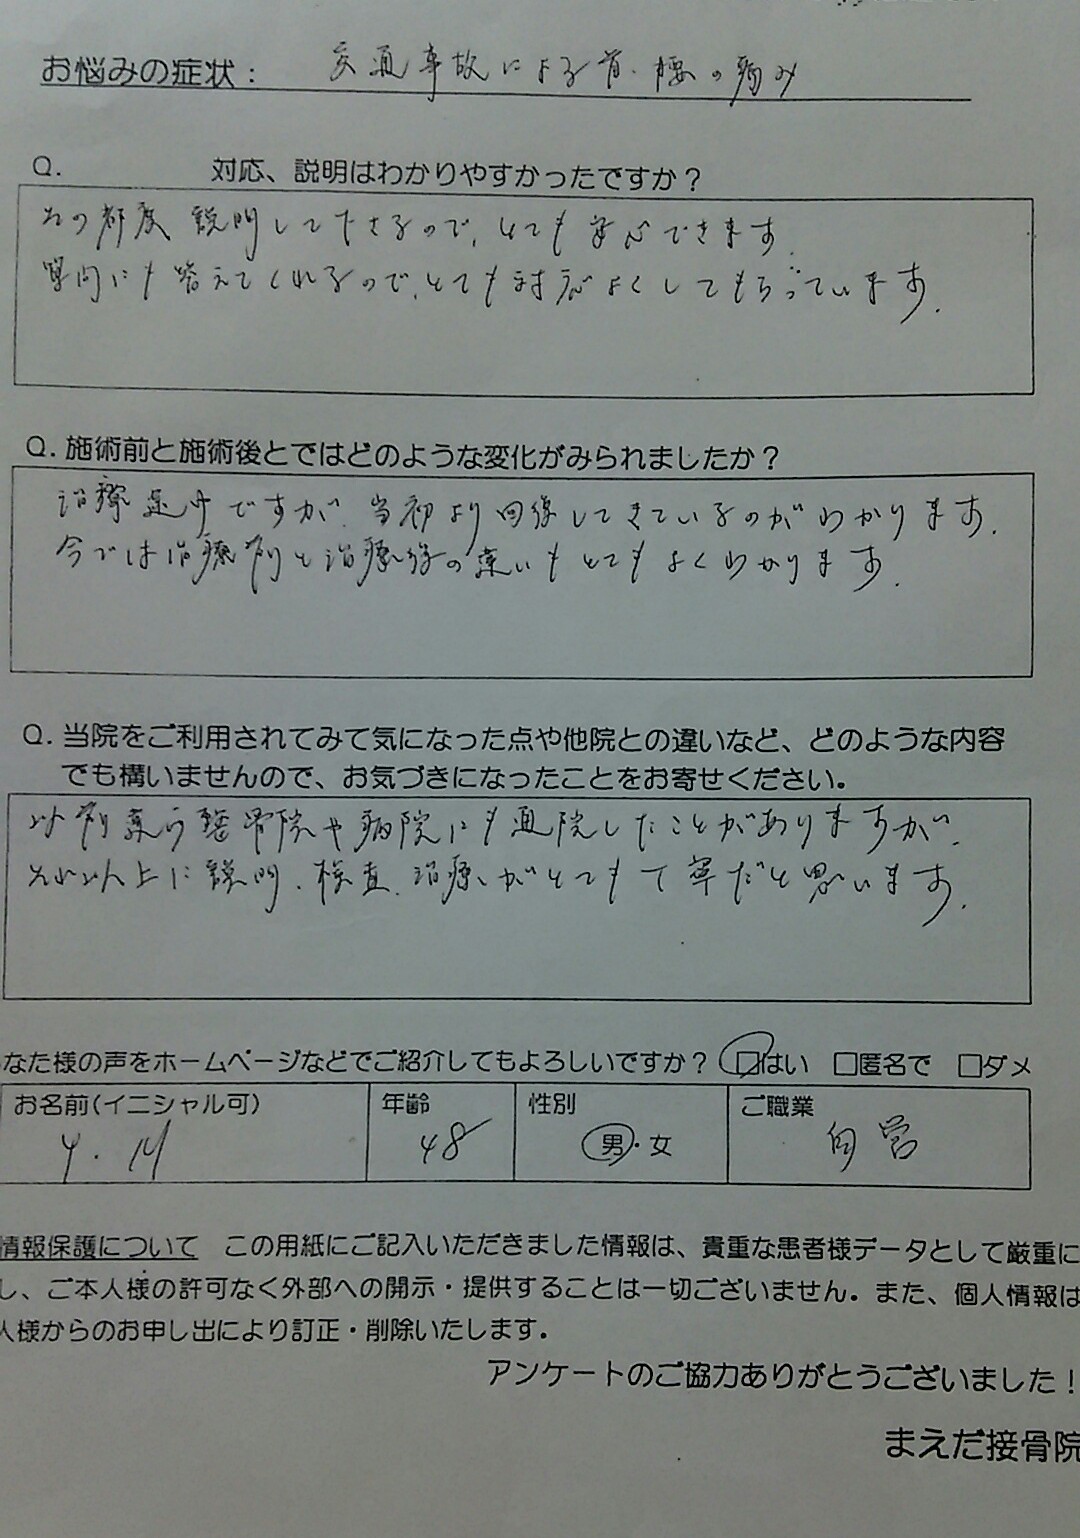 お悩みの症状: 交通事故による首・腰の痛み
Q. 対応、説明はわかりやすかったですか?
その都度 説明して下さるので、とても安心できます。
質問にも答えてくれるので、とても対応よくしてもらっています。
Q. 施術前と施術後とではどのような変化がみられましたか?
治療途中ですが、当初より回復してきているのがわかります。
今では治療前と治療後の違いもとてもよくわかります。
Q. 当院をご利用されてみて気になった点や他院との違いなど、どのような内容
でも構いませんので、お気づきになったことをお寄せください。
以前 違う整骨院や病院にも通院したことがありますが、
それ以上に説明、検査、治療がとても丁寧だと思います。
なた様の声をホームページなどでご紹介してもよろしいですか? □はい □匿名で □ダメ
お名前(イニシャル可) 年齢 性別 ご職業
Y.M 48 男・女 自営
情報保護について この用紙にご記入いただきました情報は、貴重な患者様データとして厳重に
し、ご本人様の許可なく外部への開示・提供することは一切ございません。また、個人情報は
人様からのお申し出により訂正・削除いたします。
アンケートのご協力ありがとうございました!
まえだ接骨院